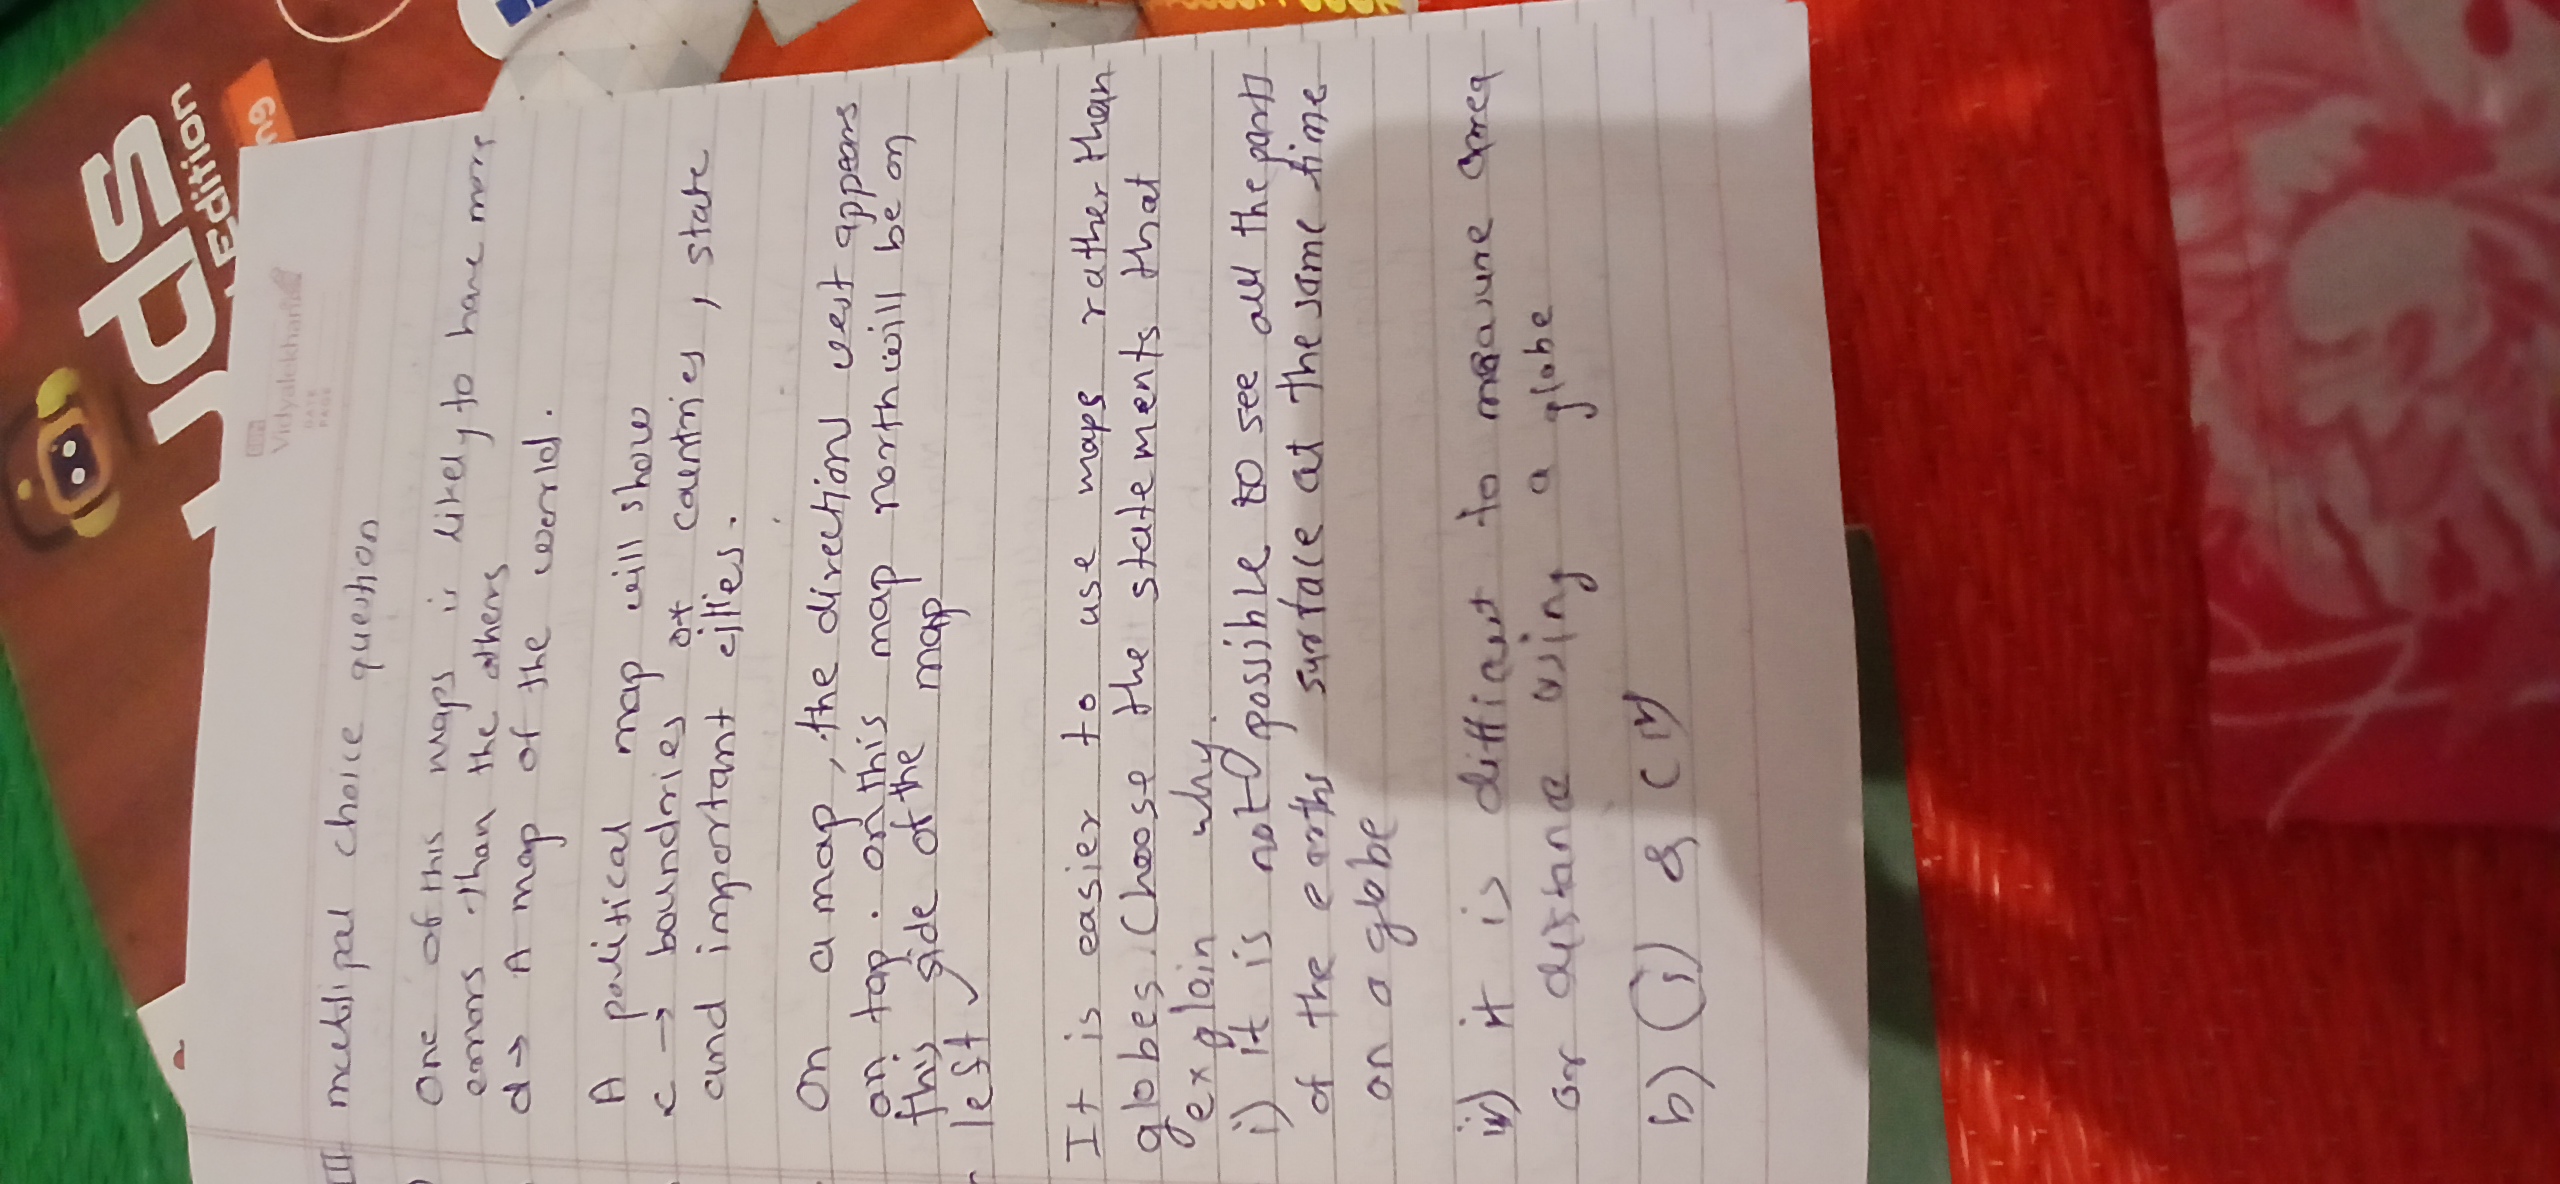 UPS
Edition
Vidyalekhan
DATE
PAGE
III multipal choice question
One of this maps is likely to have more
errors than the others
d→ A map of the world.
A political map will show
c → boundries of countries, state
and important cities.
On a map, the direction west appears
on top. on this map north will be on
this side of the map
left
It is easier to use maps rather than
globes. Choose the statements that
explain why.
i) It is not possible to see all the parts
of the earths surface at the same time
on a globe
iv) it is difficult to measure area
or distance using a globe
b) (i) & (iv)